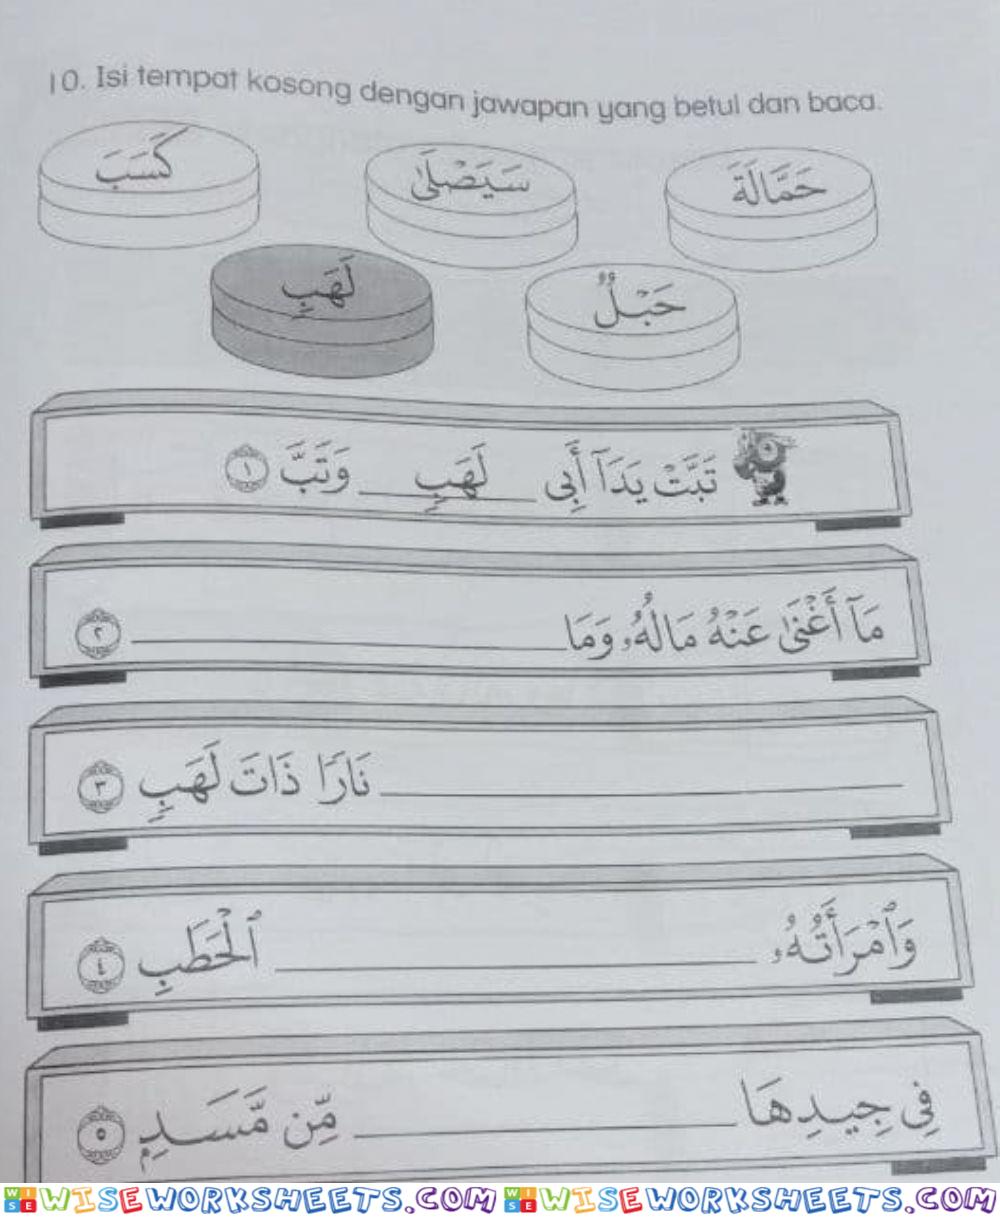 10. Isi tempat kosong dengan jawapan yang betul dan baca.
كَسَبَ
سَيَصْلَىٰ
حَمَّالَةَ
لَهَبٍ
حَبْلٌ
تَبَّتْ يَدَآ أَبِى لَهَبٍ وَتَبَّ ١
مَآ أَغْنَىٰ عَنْهُ مَالُهُۥ وَمَا ______ ٢
______ نَارًا ذَاتَ لَهَبٍ ٣
وَٱمْرَأَتُهُۥ ______ ٱلْحَطَبِ ٤
فِى جِيدِهَا ______ مِّن مَّسَدٍۭ ٥
WISE WISEWORKSHEETS.COM WISE WISEWORKSHEETS.COM